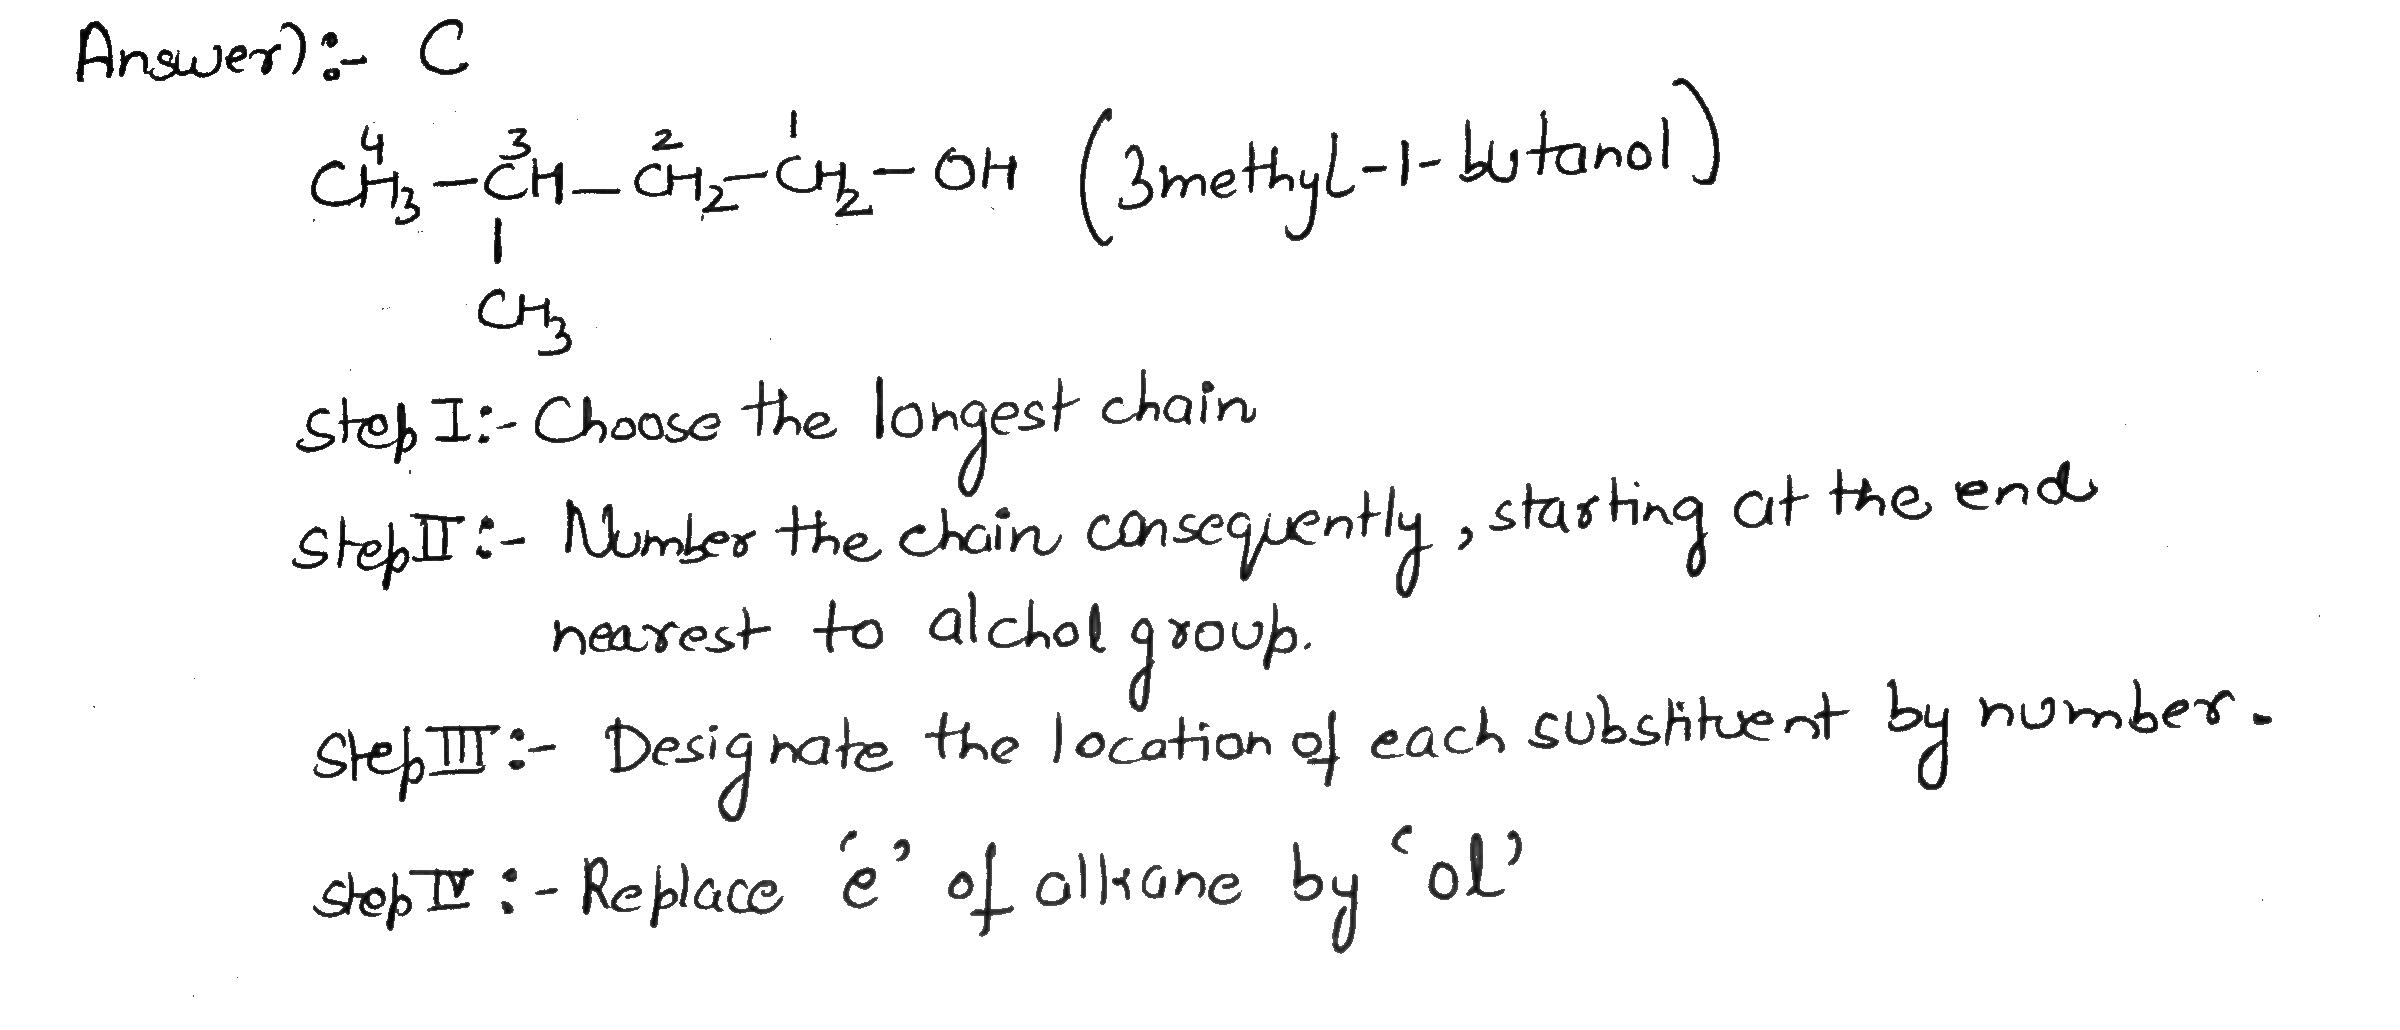 Answer):- C
4 3 2 1
CH3-CH-CH2-CH2-OH (3methyl-1-butanol)
|
CH3
Step I:- Choose the longest chain
Step II:- Number the chain consequently, starting at the end
nearest to alchol group.
Step III:- Designate the location of each substituent by number.
Step IV:- Replace 'e' of alkane by 'ol'